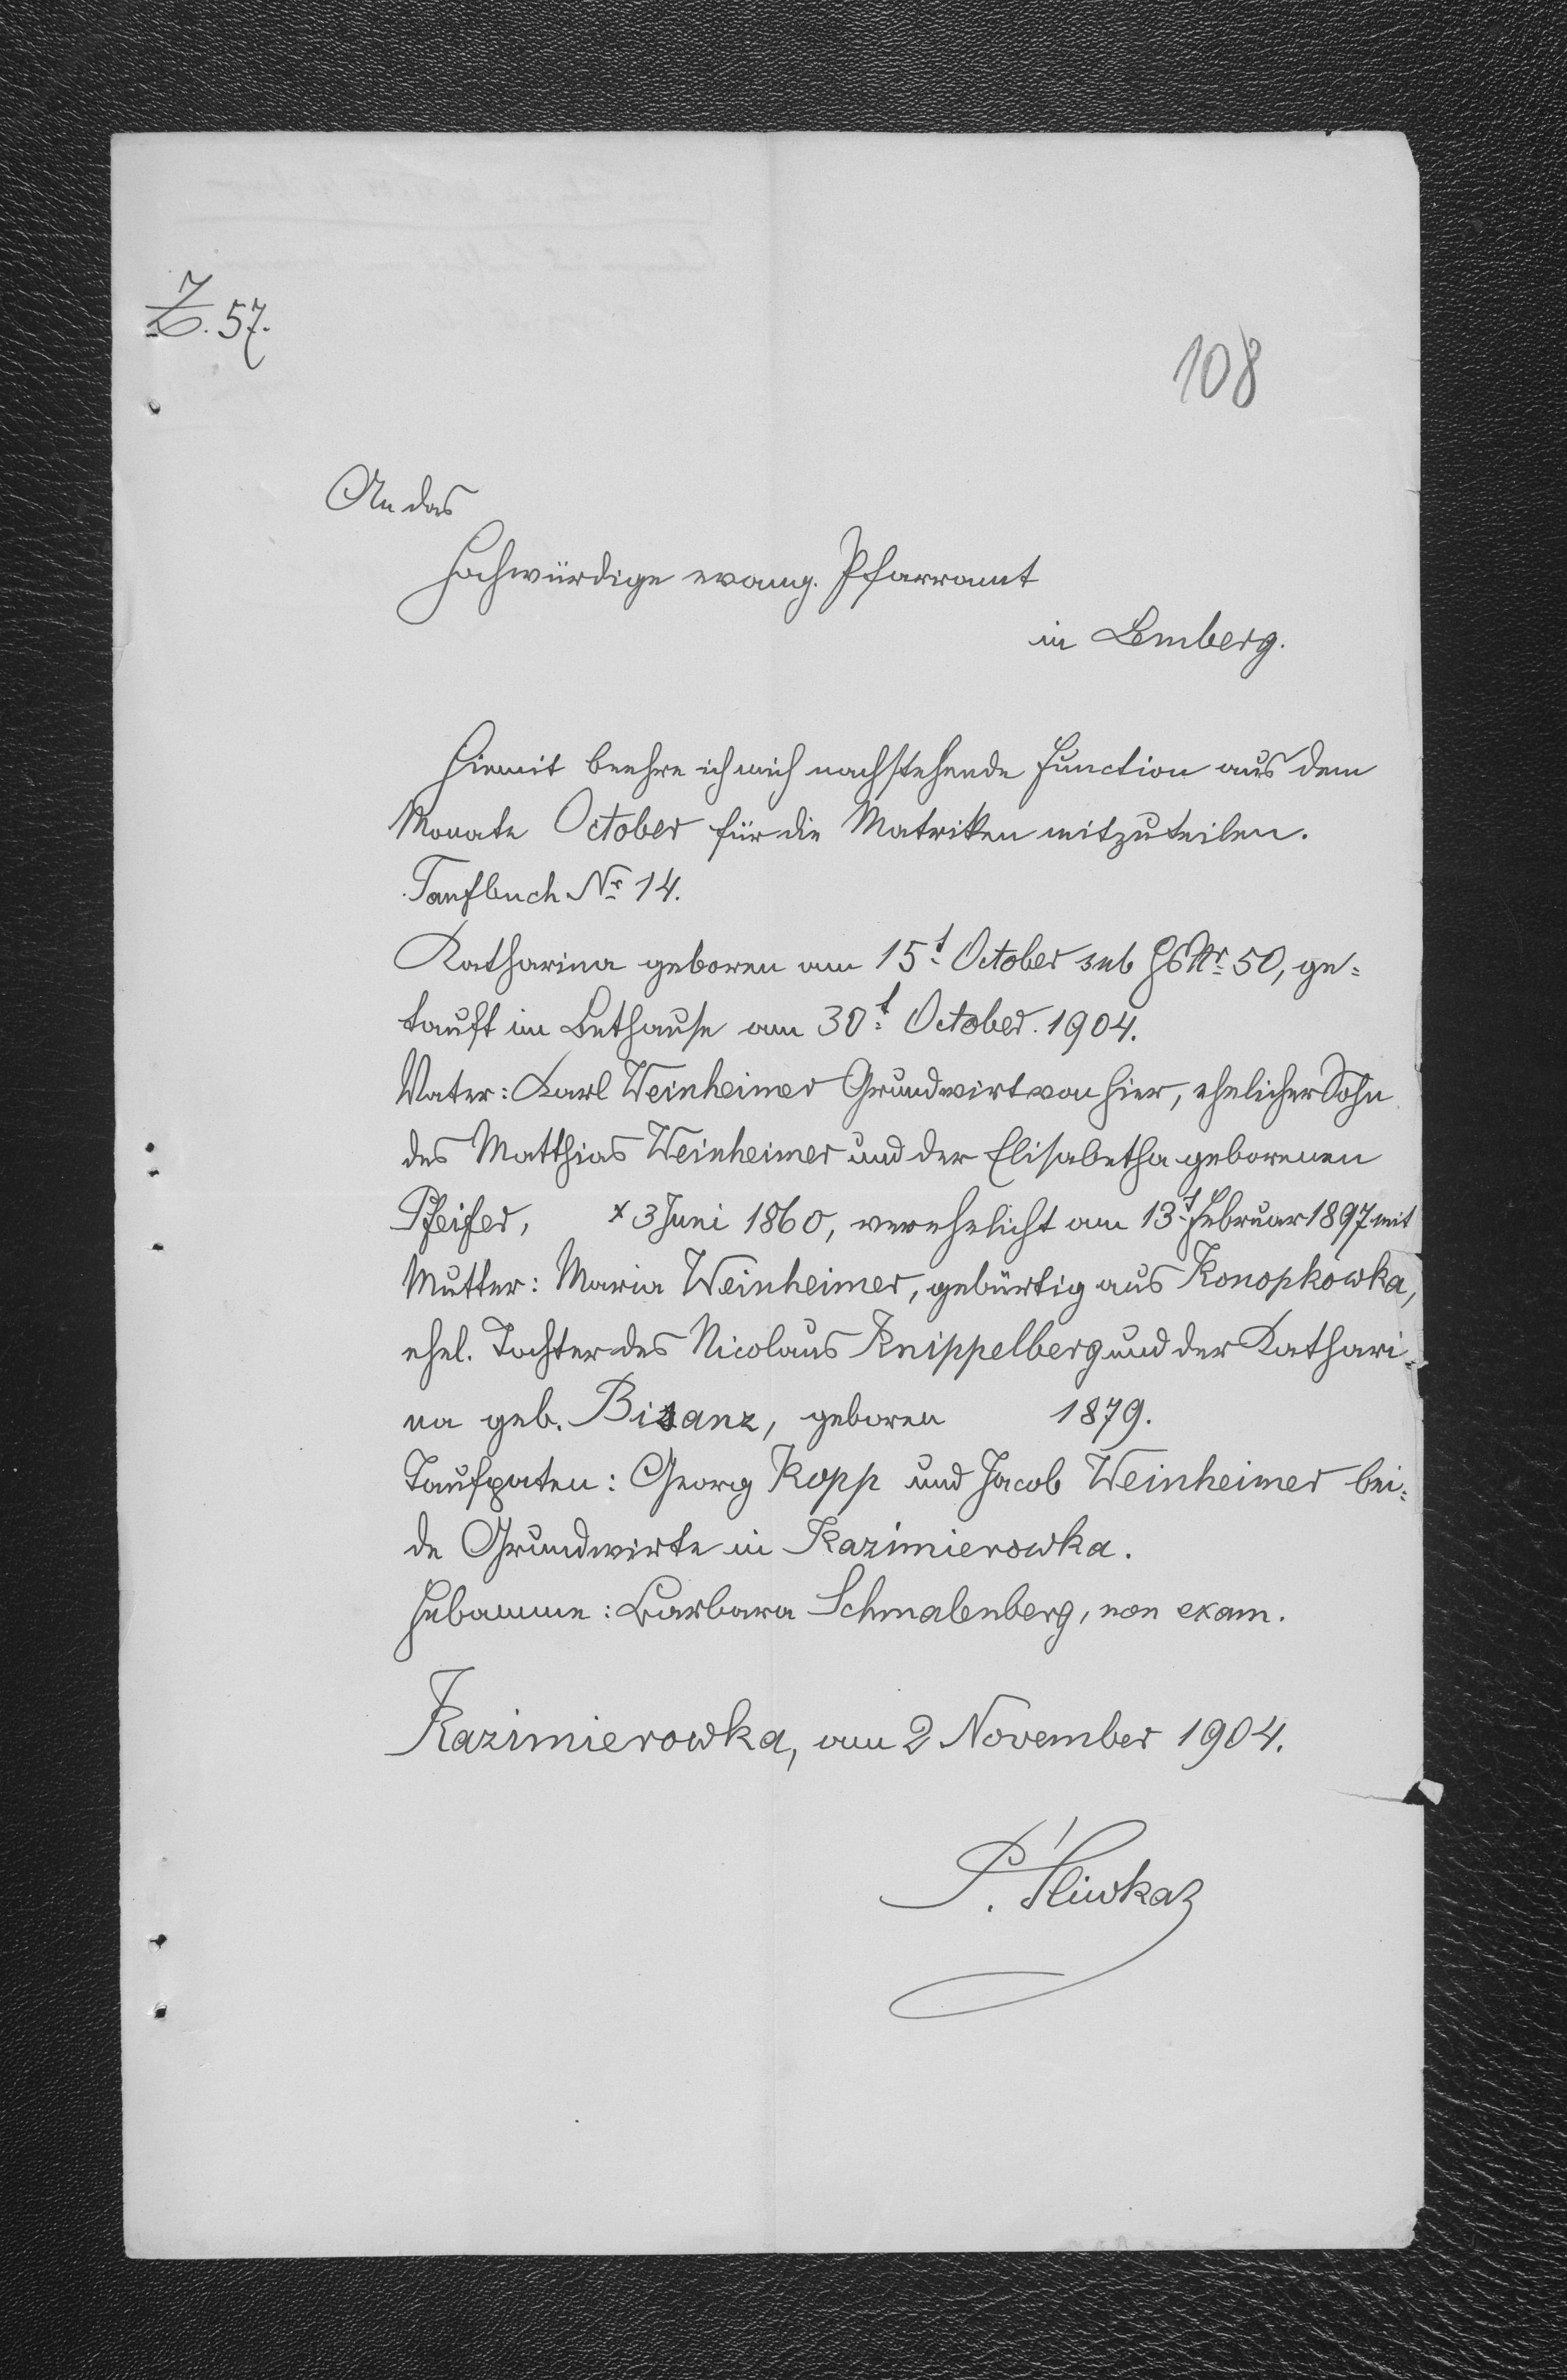 Z. 57.
108
An das
Hochwürdige evang. Pfarramt
in Lemberg.
Hiemit beehre ich mich nachstehende Function aus dem
Monate October für die Matriken mitzuteilen.
Taufbuch Nr 14.
Katharina geboren am 15t October sub HsNr 50, ge=
tauft im Bethause am 30t October 1904.
Vater: Karl Weinheimer Grundwirt von hier, ehelicher Sohn
des Matthias Weinheimer und der Elisabetha geborenen
Pfeifer, * 3 Juni 1860, verehelicht am 13t Februar 1897 mit
Mutter: Maria Weinheimer, gebürtig aus Konopkowka,
ehel. Tochter des Nicolaus Knippelberg und der Kathari=
na geb. Bisanz, geboren 1879.
Taufpaten: Georg Kopp und Jacob Weinheimer bei=
de Grundwirte in Kazimierowka.
Hebamme: Barbara Schmalenberg, non exam.
Kazimierowka, am 2 November 1904.
P. Śliwkaz